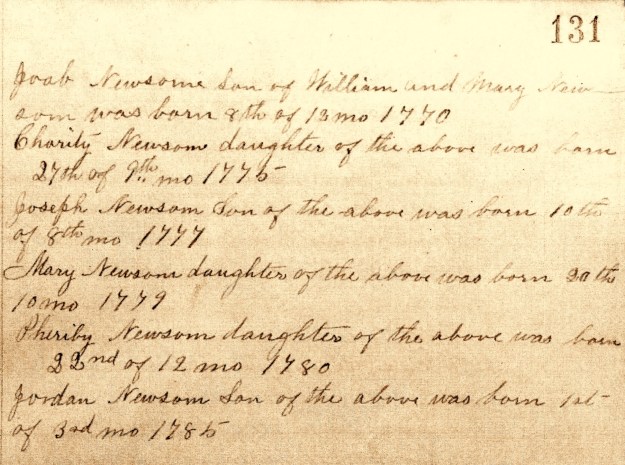 131
Joab Newsome Son of William and Mary New-
som was born 8th of 12mo 1770
Charity Newsom daughter of the above was born
27th of 9th mo 1775
Joseph Newsom Son of the above was born 10th
of 8th mo 1777
Mary Newsom daughter of the above was born 20th
10mo 1779
Pheriby Newsom daughter of the above was born
22nd of 12 mo 1780
Jordan Newsom Son of the above was born 1st
of 3rd mo 1785